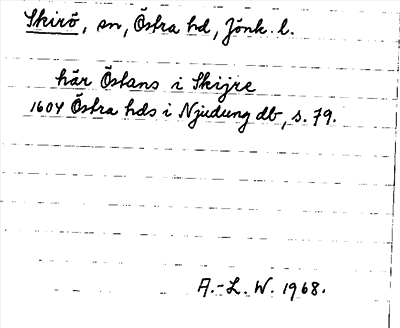 Skirö, sn, Östra hd, Jönk. l.
här Östans i Skijre
1604 Östra hds i Njudung db, s. 79.
A.-L. W. 1968.